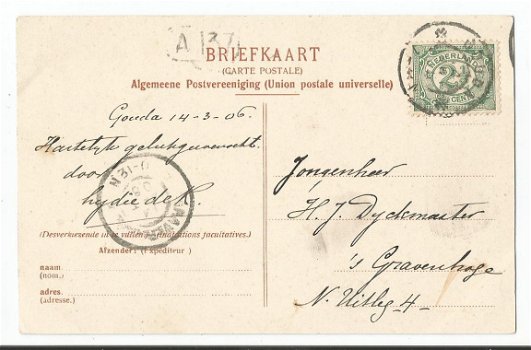 A 137
BRIEFKAART
(CARTE POSTALE)
Algemeene Postvereeniging (Union postale universelle)
NEDERLAND
2½
CENT
Gouda 14-3-06.
Hartelijk gelukgewenscht
door
(Desverkiezende in te vullen.) (Indications facultatives.)
Afzender: (Expediteur)
naam
(nom.)
adres
(adresse.)
Jongenheer
H. J. Dyckmeester
's Gravenhage
N. Uitleg 4